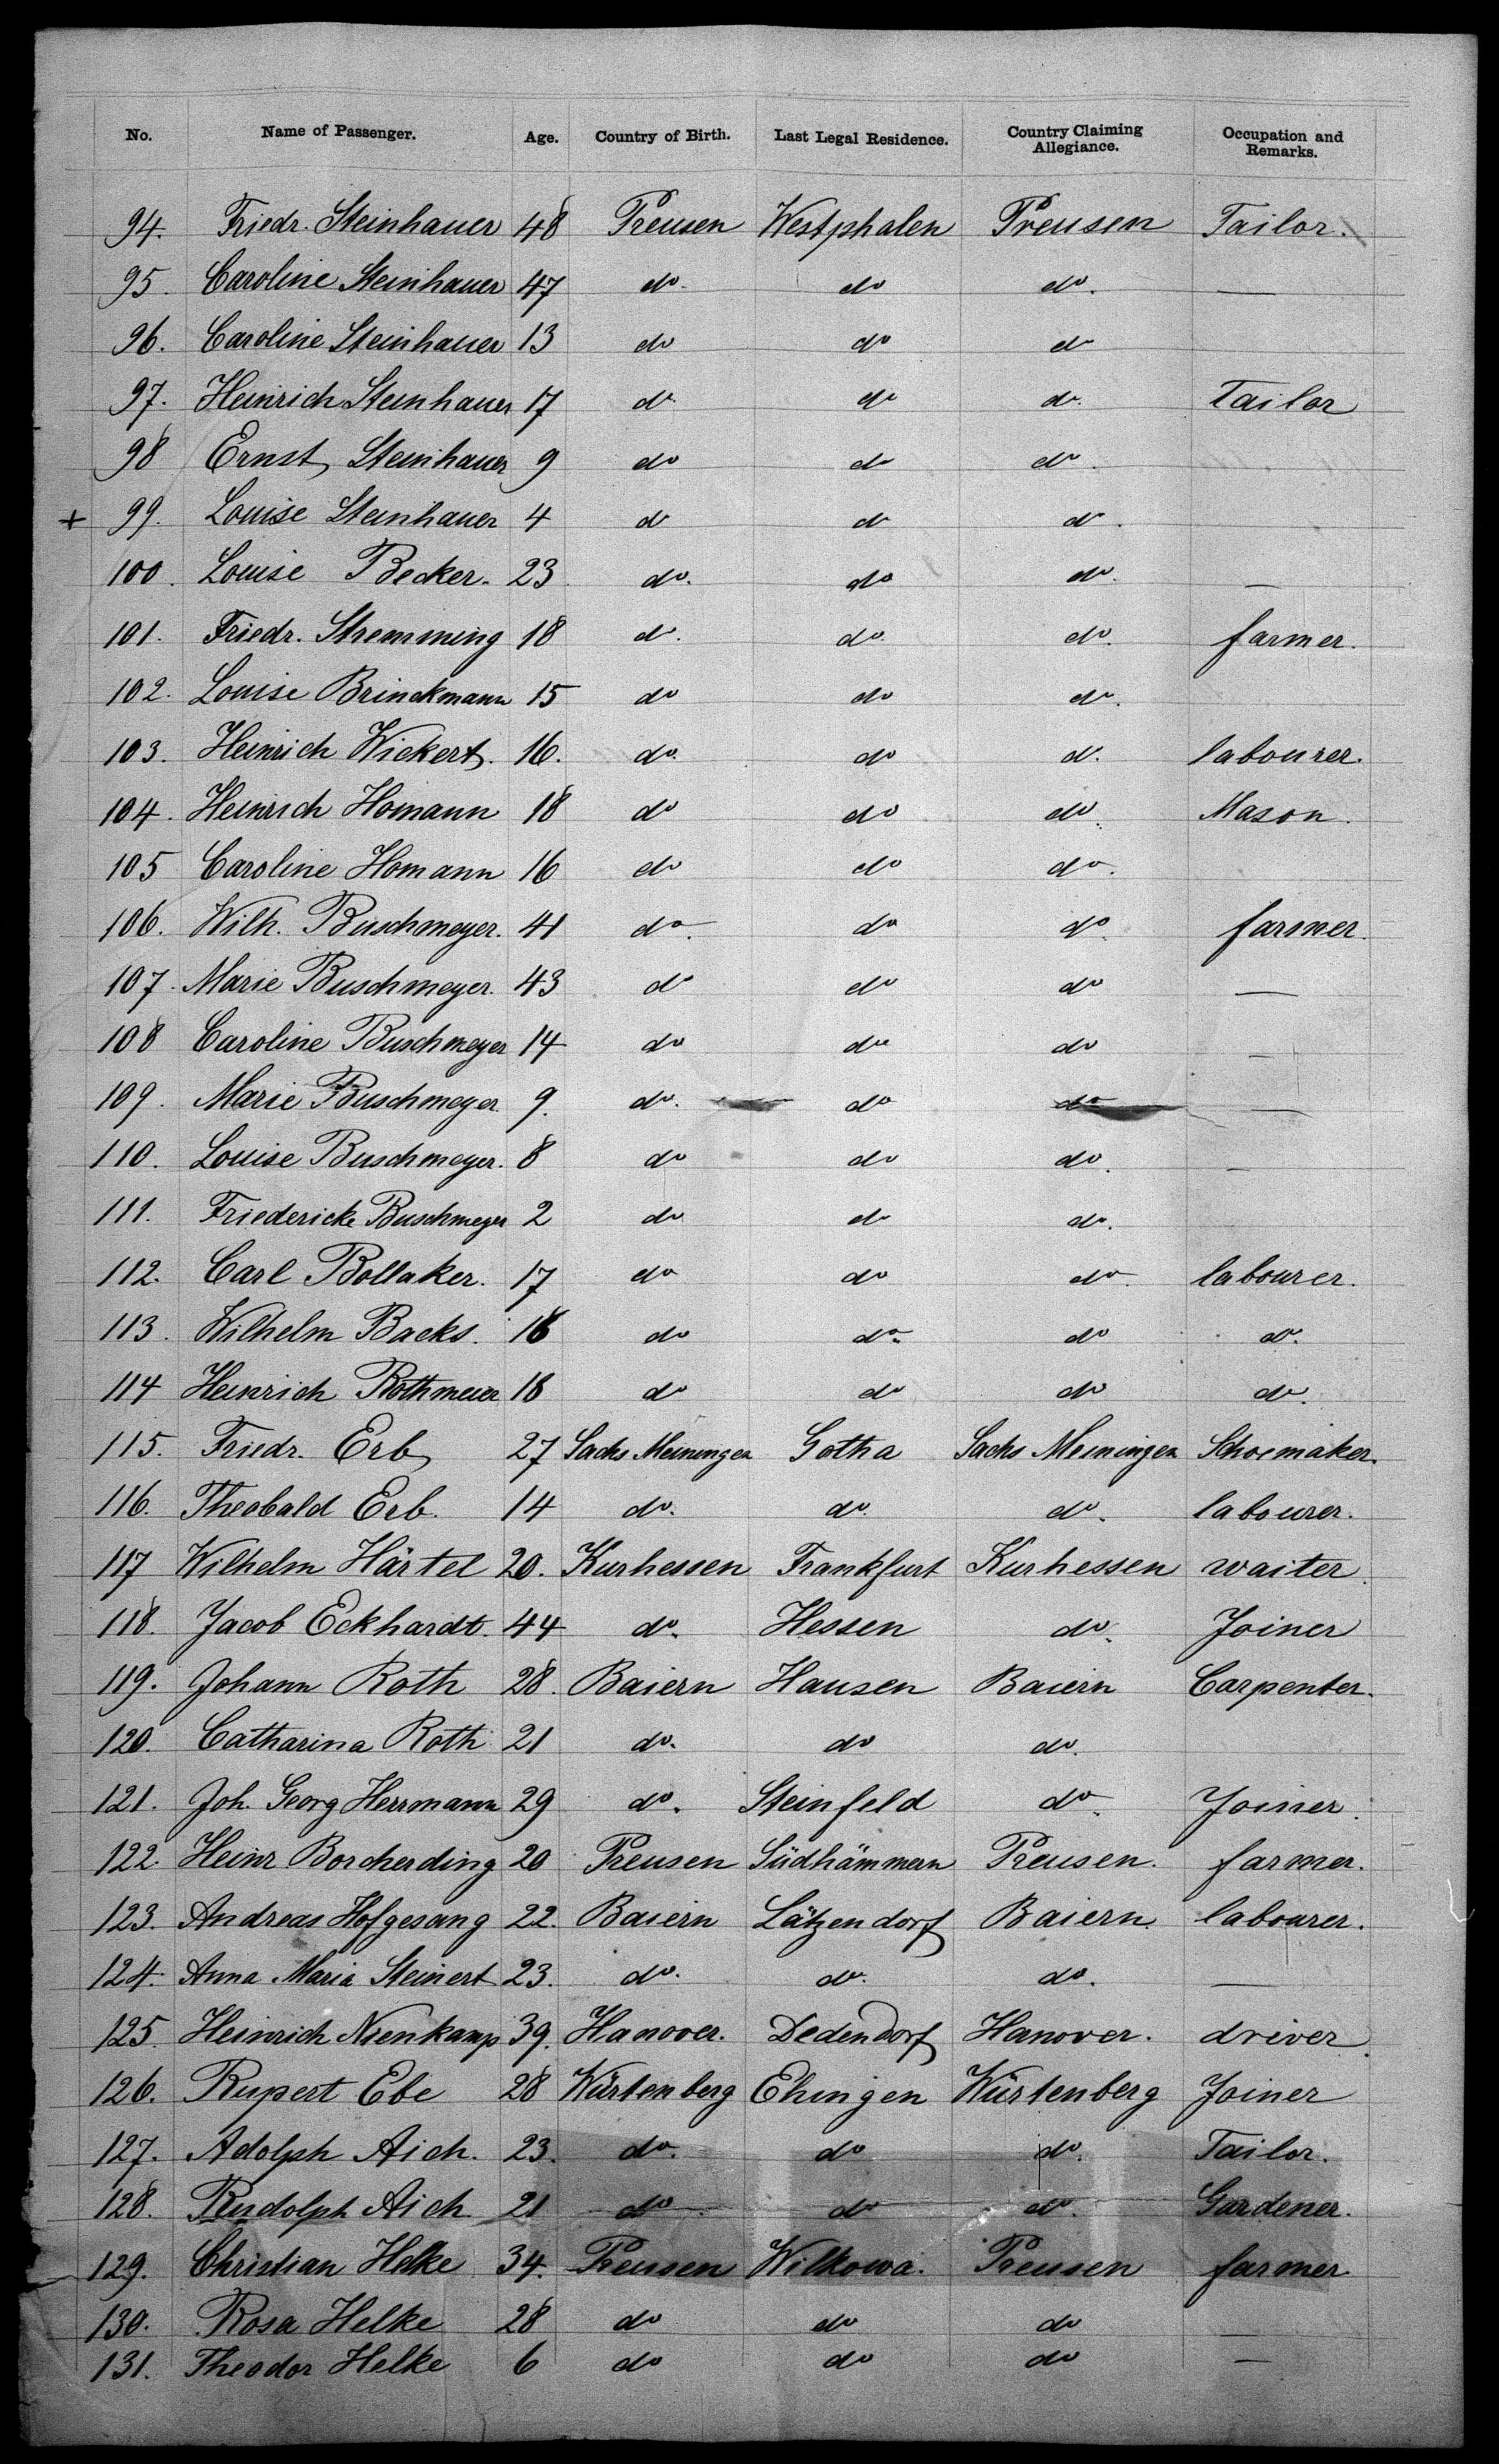 No. Name of Passenger. Age. Country of Birth. Last Legal Residence. Country Claiming Allegiance. Occupation and Remarks.
94. Friedr. Steinhauer 48 Preusen Westphalen Preusen Tailor.
95. Caroline Steinhauer 47 do. do do. —
96. Caroline Steinhauer 13 do do do
97. Heinrich Steinhauer 17 do do do. Tailor
98 Ernst Steinhauer 9 do do do.
+ 99. Louise Steinhauer 4 do do do.
100. Louise Becker. 23 do. do do. —
101. Friedr. Stremming 18 do. do. do. farmer.
102. Louise Brinckmann 15 do do do.
103. Heinrich Wickert. 16. do. do do. labourer.
104. Heinrich Homann 18 do do do. Mason.
105 Caroline Homann 16 do do do.
106. Wilh. Buschmeyer. 41 do. do do. farmer.
107. Marie Buschmeyer. 43 do do do —
108 Caroline Buschmeyer 14 do do do —
109. Marie Buschmeyer. 9. do. do do —
110. Louise Buschmeyer. 8 do do do. —
111. Friedericke Buschmeyer 2 do do do.
112. Carl Bollaker. 17 do do do. labourer.
113. Wilhelm Backs. do do. do do.
114 Heinrich Rothmeier 18 do do do do.
115. Friedr. Erb 27 Sachs Meiningen Gotha Sachs Meiningen Schoemaker.
116. Theobald Erb. 14 do. do. do. labourer.
117 Wilhelm Härtel 20. Kurhessen Frankfurt Kurhessen waiter.
118. Jacob Eckhardt. 44 do. Hessen do. Joiner
119. Johann Roth 28. Baiern Hausen Baiern Carpenter.
120. Catharina Roth 21 do. do do.
121. Joh. Georg Herrmann 29 do. Steinfeld do. Joiner.
122. Heinr Borcherding 20 Preusen Südhämmern Preusen. farmer.
123. Andreas Hofgesang 22. Baiern Lätzendorf Baiern. labourer.
124. Anna Maria Steinert 23. do. do. do. —
125. Heinrich Nienkamp 39. Hanover. Dedendorf Hanover. driver.
126. Rupert Ebe 28 Würtenberg Ehingen Würtenberg Joiner
127. Adolph Aich. 23. do. do do. Tailor.
128. Rudolph Aich. 21 do. do do. Gardener.
129. Christian Helke 34. Preusen Wilkowa. Preusen farmer
130. Rosa Helke 28 do do do —
131. Theodor Helke 6 do do do —